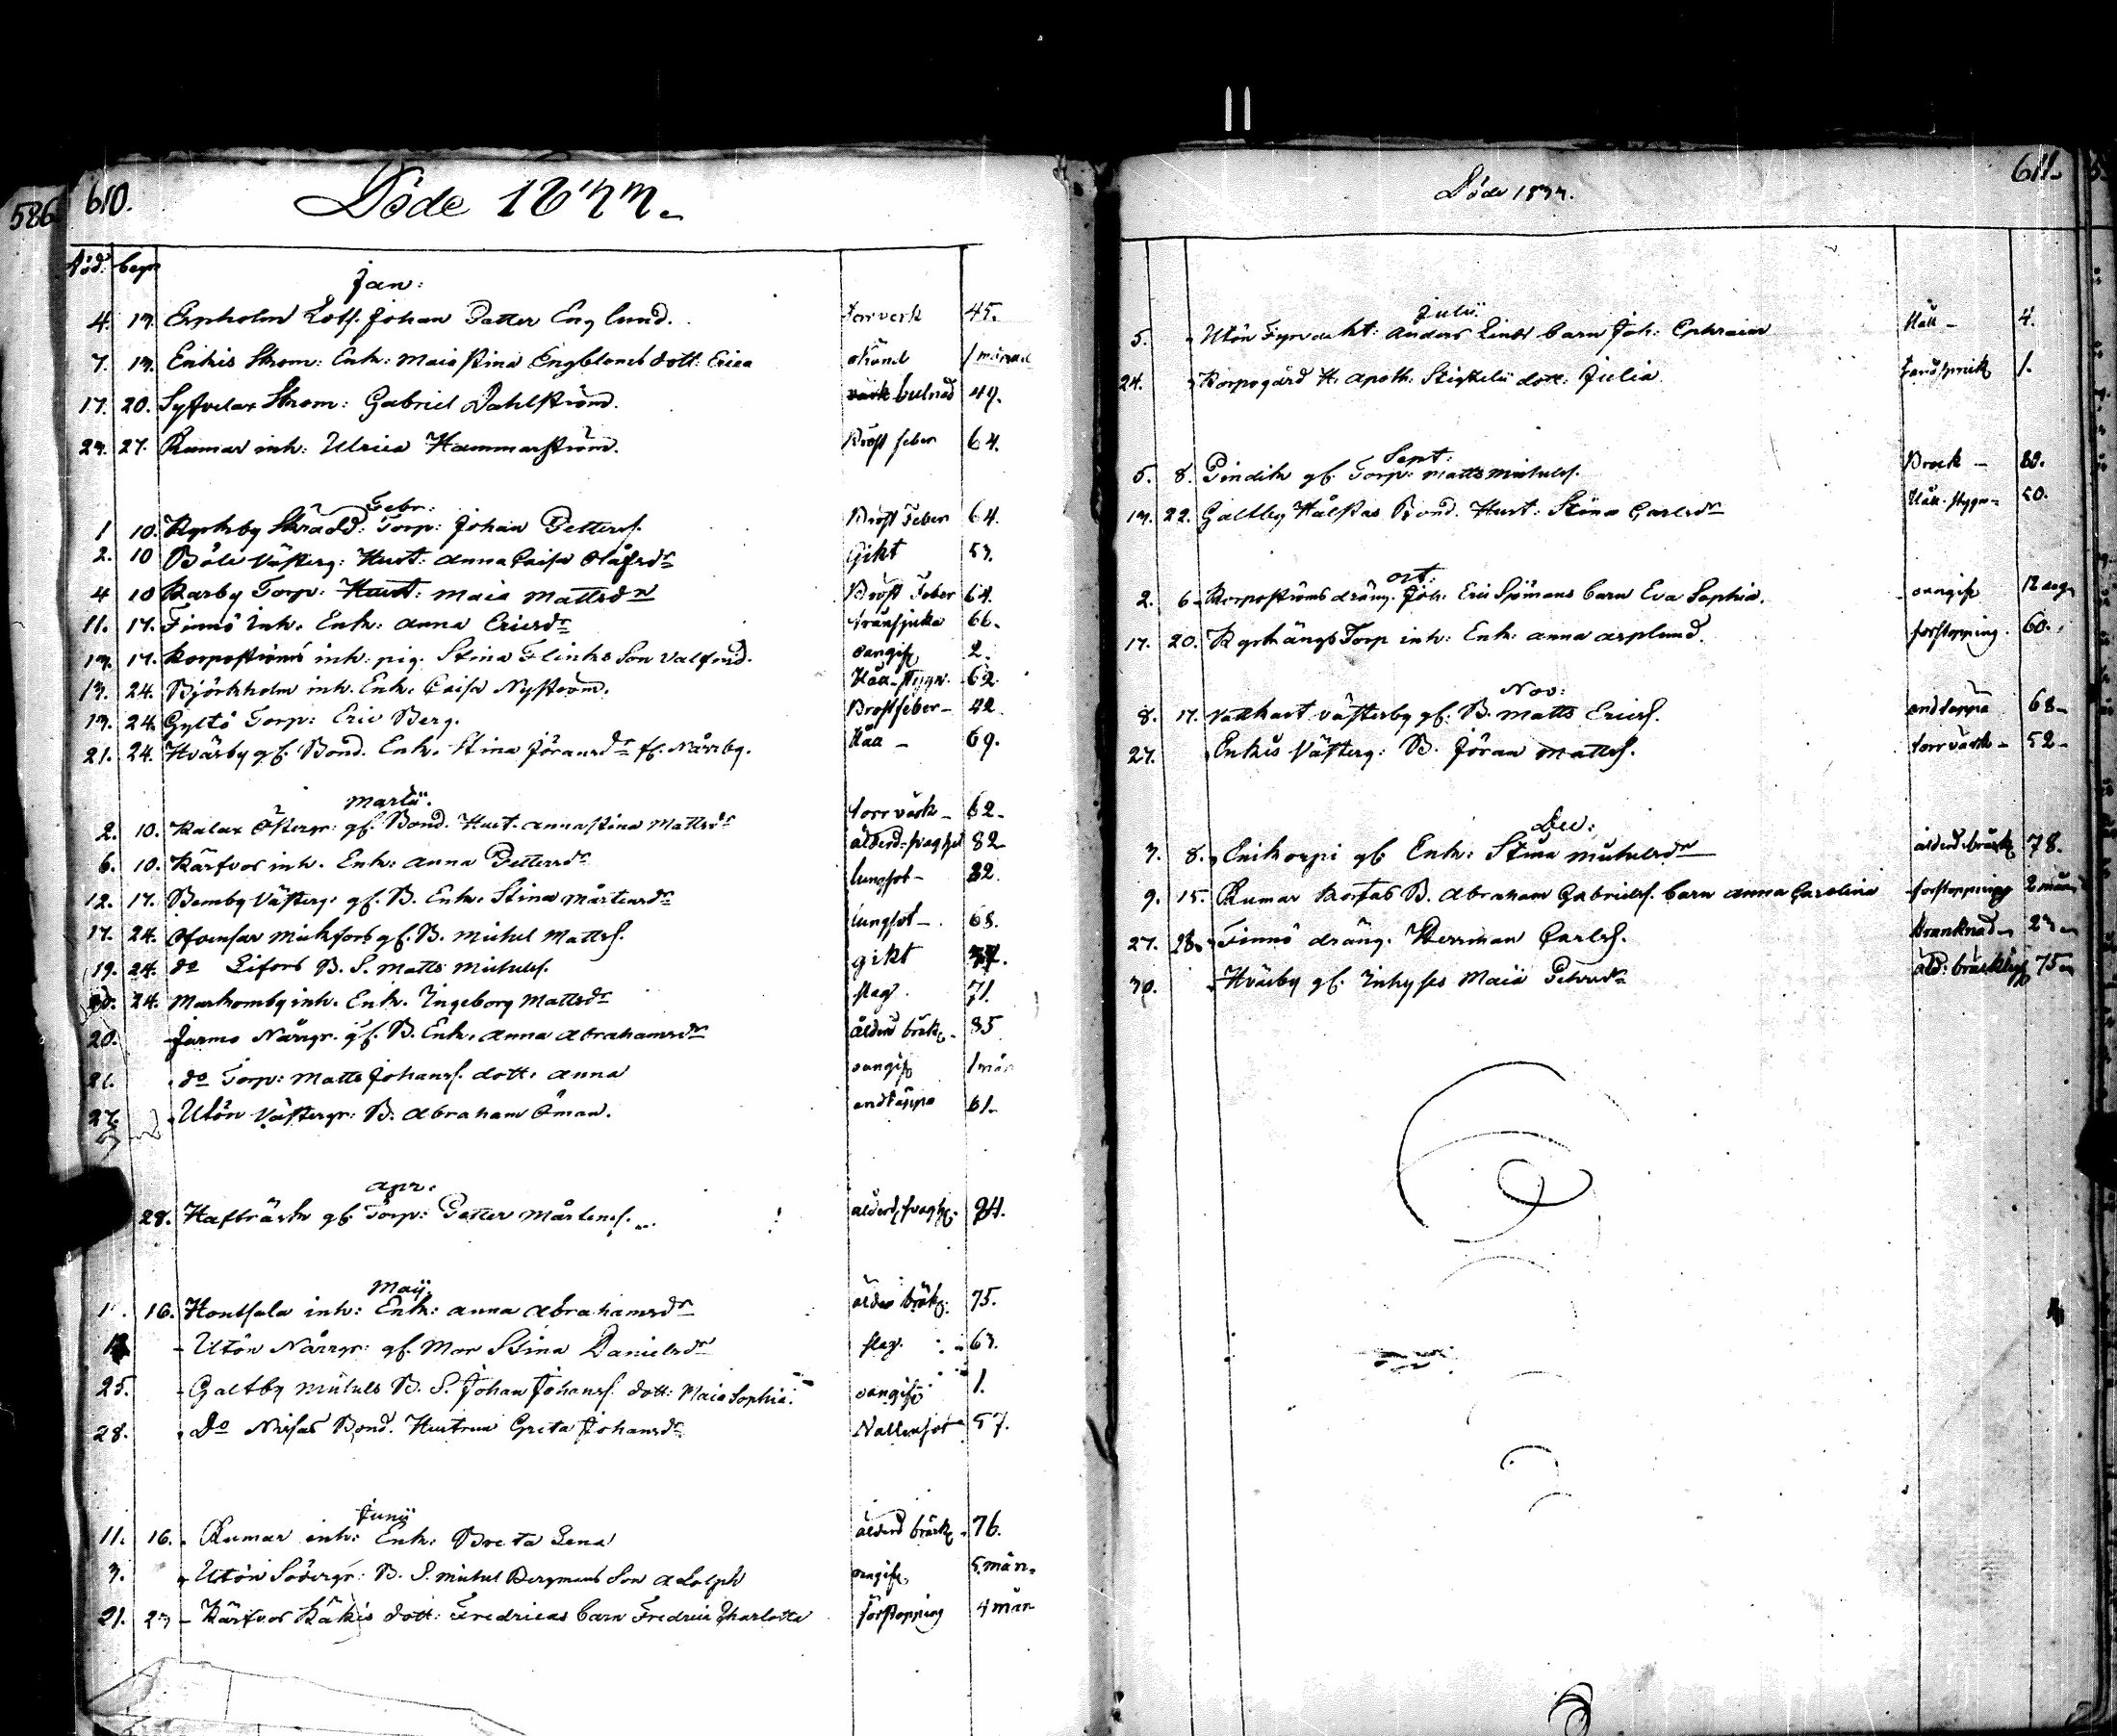 586
610.
Döde 1833.
död. begr
Jan:
4. 13. Erpholm Lots. Johan Petter Englund. torrverk 45.
7. 13. Enkis Skrom: Enk: Maia Stina Engbloms dott: Erica okänd 1 månad
17. 20. Syttvelax Skrom: Gabriel Dahlström. bulnad 49.
23. 27. Rumar inh: Ulrica Hammarström. Bröst feber 64.
Febr:
1 10. Kyrkby Skrädd: Torp: Johan Petterss. Bröst Feber 64.
2. 10 Böle Västerg: Hust: Anna Caisa Olåfsdr Gikt 53.
4 10 Karby Torp: Hust: Maia Mattsdr Bröst Feber 64.
11. 17. Finnö Inh. Enk: Anna Ericsdr tränsjuka 66.
13. 17. Korpoströms inh. pig. Stina Flinks Son Valfrid. oangif 2.
13. 24. Björkholm inh. Enk. Caisa Nyström. Håll-stygn. 62.
13. 24. Gyltö Torp: Eric Berg. Bröstfeber - 42.
21. 24. Hvarby gf. Bond. Enk. Stina Jöransdr fr. Norrby. Håll - 69.
Martii.
2. 10. Kalax Östergr: gf. Bond. Hust. Anna Stina Mattsdr torrvärk - 62.
6. 10. Kärfvos inh. Enk: Anna Pettersdr ålderd-svaghet 82
12. 17. Bemby Västerg. gf. B. Enk. Stina Mårtensdr lungsot - 82.
17. 24. Michels gf. B. Michel Mattss. lungsot - 68.
19. 24. do Lifors B. S. Matts Michelss. gikt
20. 24. Markomby inh. Enk. Ingeborg Mattsdr slag. 71.
20. Jurmo Norrgr. gf. B. Enk. Anna Abrahamsdr ålderd bräck. 85
21. do Torp: Matts Johanss. dott. Anna oangif 1 mån
27. Utön Västergr: B. Abraham Öman. andtäppa 61.
Apr.
28. Hafträsk gf. Torp: Petter Mårtenss. ålderd. svagh. 84.
Maij.
1. 16. Houtsala inh: Enk: Anna Abrahamsdr ålder bräck. 75.
- Utön Norrgr: gf. Mor Stina Danielsdr slag. 63.
25. - Galtby Michels B. S. Johan Johanss. dott: Maia Sophia. oangif 1.
28. Do Nissas Bond. Hustrun Greta Johansdr Vattensot 57.
Junii
11. 16. - Rumar inh: Enk: Breta Lena ålderd bräck 76.
3. Utön Södergr: B. S. Michel Bergmans Son Adolph oangif. 5 mån.
21. 23 - Kärfvos Käkis dott: Fredricas barn Fredrica Charlotta förstoppning 4 mån
611.
Döde 1833.
Julii
5. Utön Fyrvakt: Anders Linds barn Joh: Ephraim Håll - 4.
24. Korpogård H. Apoth. dott: Julia tandsprick 1.
Sept:
5. 8. Pindik gf. Torp: Matts Michelss. Brock - 80.
13. 22. Galtby Hålstas Bond. Hust: Stina Carlsdr Håll-stygn - 50.
Oct:
2. 6 - Korpoströms dräng. Joh: Eric Sjömans barn Eva Sophia. oangif 12 dag
17. 20. Kyrkängs Torp inh: Enk: Anna Asplund. förstoppning. 60.
Nov:
8. 17. Vattkast Västerby gf. B. Matts Ericss. andtäppa 68 -
27. Enkis Västerg: B. Jöran Mattss. torrvärk - 52 -
Dec:
3. 8. Enikorpi gf. Enk: Stina Michelsdr ålderd bräck 78.
9. 15. Rumar Korsas B. Abraham Gabrielss. barn Anna Carolina förstoppning 2 mån
27. 28. Finnö dräng. Herrman Carlss. Dranknad 23
30. Hvarby gf. Inhyses Maia Petersdr åld: bräcklig 75